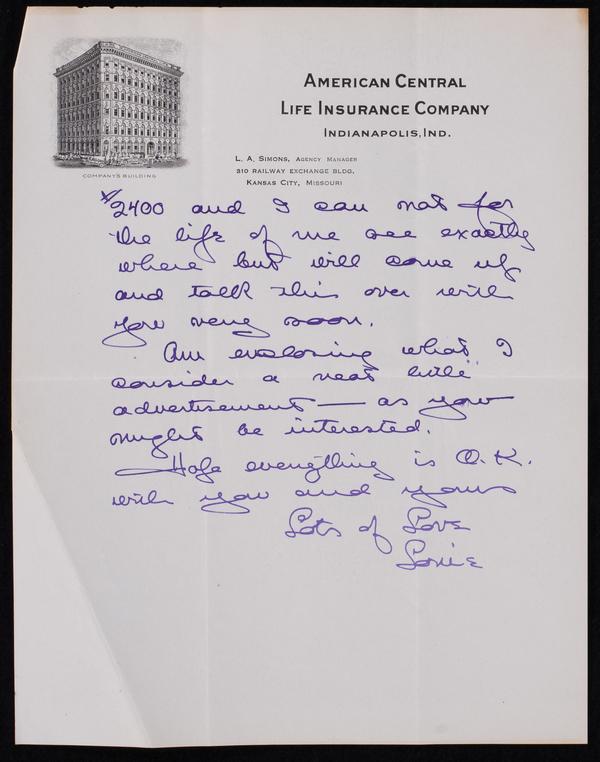 AMERICAN CENTRAL
LIFE INSURANCE COMPANY
INDIANAPOLIS, IND.
COMPANY'S BUILDING
L. A. SIMONS, AGENCY MANAGER
310 RAILWAY EXCHANGE BLDG.
KANSAS CITY, MISSOURI
$2400 and I can not for
the life of me see exactly
where but will come up
and talk this over with
you very soon.
Am enclosing what I
consider a neat little
advertisement — as you
might be interested.
Hope everything is O.K.
with you and yours
Lots of Love
Louie